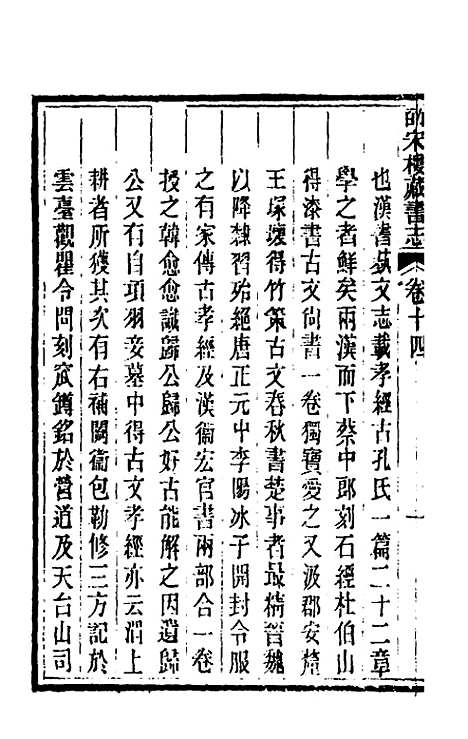 皕宋樓藏書志 卷十四 一
也漢書蓺文志載孝經古孔氏一篇二十二章
學之者鮮矣兩漢而下蔡中郎刻石經杜伯山
得漆書古文尙書一卷獨寶愛之又汲郡安釐
王塚壞得竹策古文春秋書楚事者最精晉魏
以降隸習殆絕唐正元中李陽冰子開封令服
之有家傳古孝經及漢衞宏官書兩部合一卷
授之韓愈愈識歸公歸公好古能解之因遺歸
公又有自項羽妾墓中得古文孝經亦云渭上
耕者所獲其次有右補闕衞包勒修三方記於
雲臺觀瞿令問刻窊罇銘於營道及天台山司